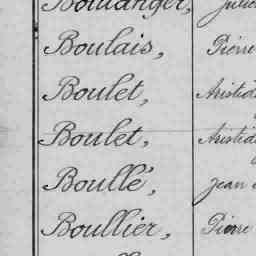 Boulanger,
Boulais, Pierre
Boulet, Aristid
Boulet, Aristid
Boullé, Jean
Boullier, Pierre